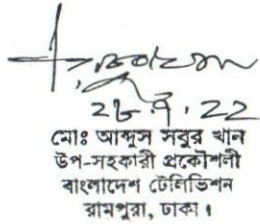 ২৮.৭.22
মোঃ আব্দুস সবুর খান
উপ-সহকারী প্রকৌশলী
বাংলাদেশ টেলিভিশন
রামপুরা, ঢাকা।